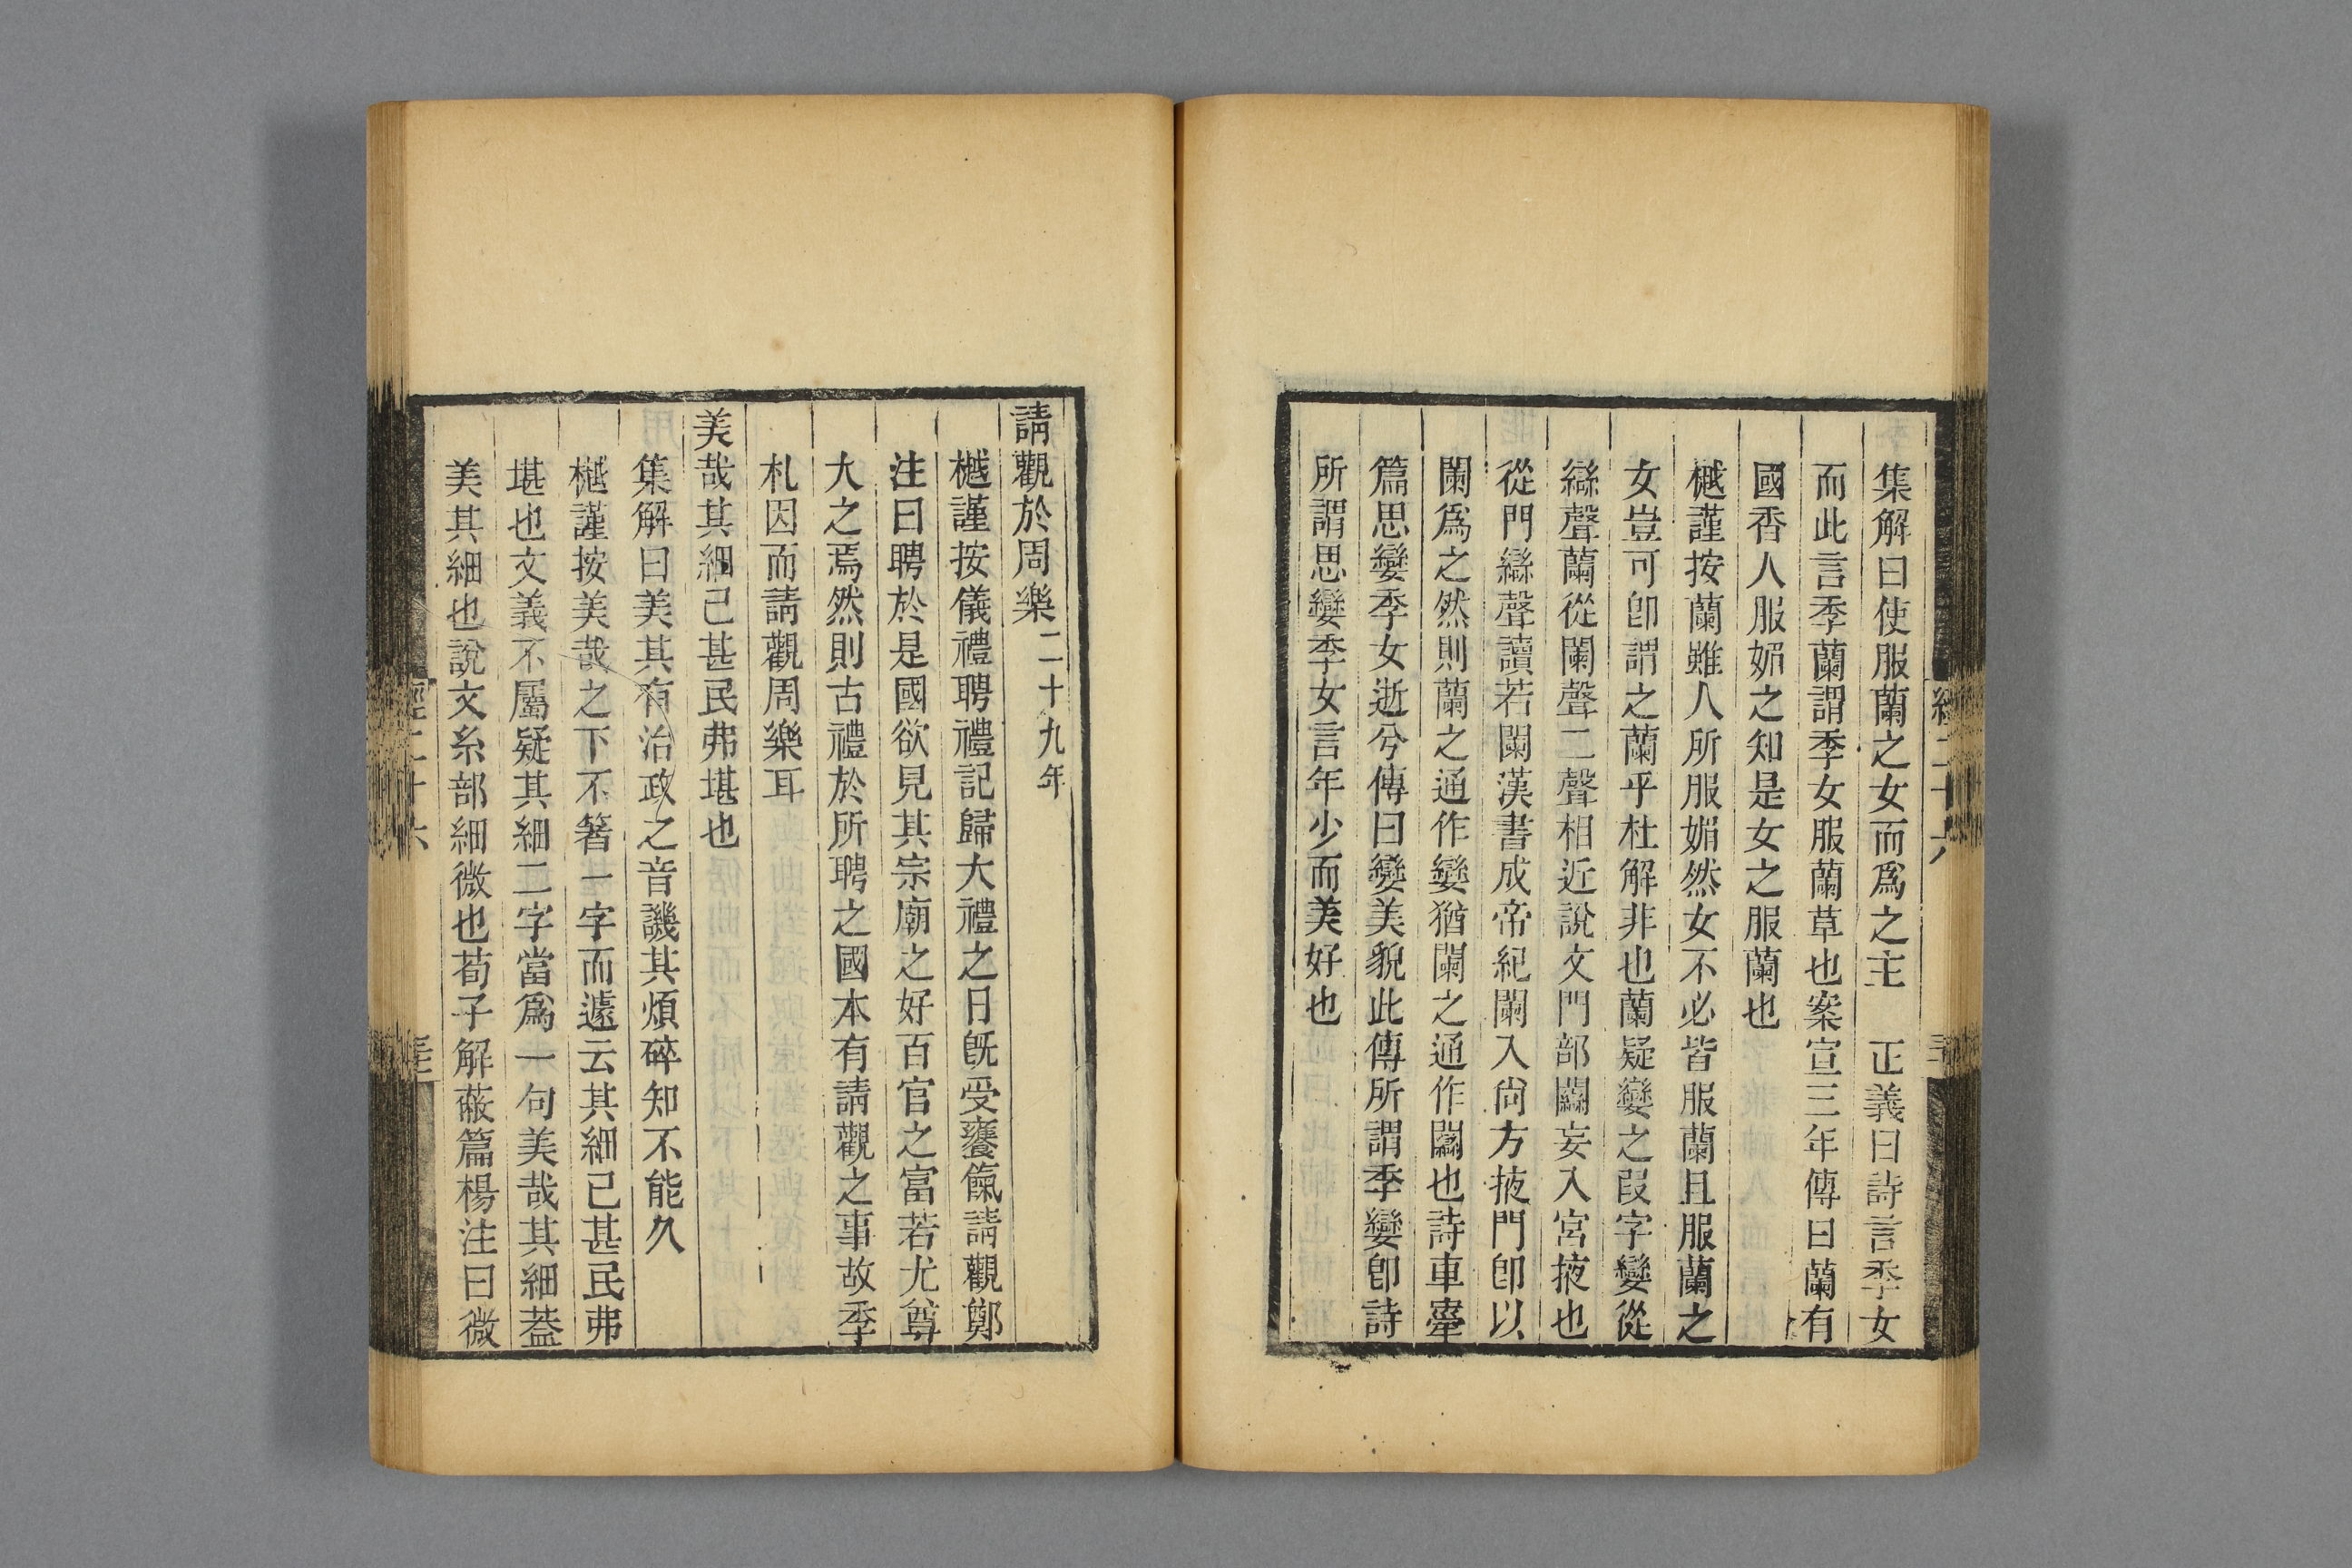 集解曰使服蘭之女而爲之主　正義曰詩言季女
而此言季蘭謂季女服蘭草也案宣三年傳曰蘭有
國香人服媚之知是女之服蘭也
樾謹按蘭雖人所服媚然女不必皆服蘭且服蘭之
女豈可卽謂之蘭乎杜解非也蘭疑孌之叚字孌從
䜌聲蘭從闌聲二聲相近說文門部闌妄入宮掖也
從門䜌聲讀若闌漢書成帝紀闌入尙方掖門卽以
闌爲之然則蘭之通作孌猶闌之通作䦨也詩車舝
篇思孌季女逝兮傳曰孌美貌此傳所謂季孌卽詩
所謂思孌季女言年少而美好也
請觀於周樂二十九年
樾謹按儀禮聘禮記歸大禮之日旣受饔餼請觀鄭
注曰聘於是國欲見其宗廟之好百官之富若尤尊
大之焉然則古禮於所聘之國本有請觀之事故季
札因而請觀周樂耳
美哉其細已甚民弗堪也
集解曰美其有治政之音譏其煩碎知不能久
樾謹按美哉之下不箸一字而遽云其細已甚民弗
堪也文義不屬疑其細二字當爲一句美哉其細蓋
美其細也說文糸部細微也荀子解蔽篇楊注曰微